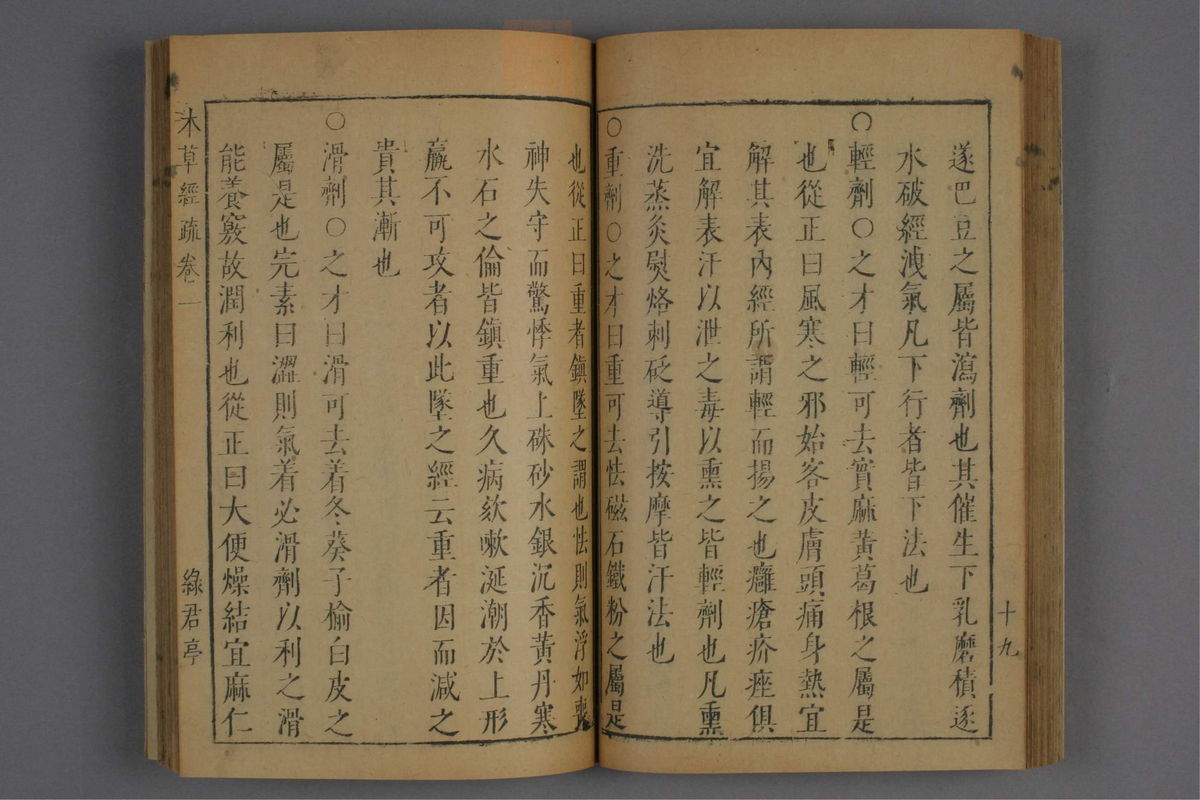 十九
遂巴豆之屬皆瀉劑也其催生下乳磨積逐
水破經洩氣凡下行者皆下法也
○輕劑○之才曰輕可去實麻黃葛根之屬是
也從正曰風寒之邪始客皮膚頭痛身熱宜
解其表內經所謂輕而揚之也癰瘡疥痤俱
宜解表汗以泄之毒以熏之皆輕劑也凡熏
洗蒸灸熨烙刺砭導引按摩皆汗法也
○重劑○之才曰重可去怯磁石鐵粉之屬是
也從正曰重者鎮墜之謂也怯則氣浮如喪
神失守而驚悸氣上硃砂水銀沉香黃丹寒
水石之倫皆鎮重也久病欬嗽涎潮於上形
羸不可攻者以此墜之經云重者因而減之
貴其漸也
○滑劑○之才曰滑可去着冬葵子榆白皮之
屬是也完素曰澀則氣着必滑劑以利之滑
能養竅故潤利也從正曰大便燥結宜麻仁
本草經疏卷一
綠君亭